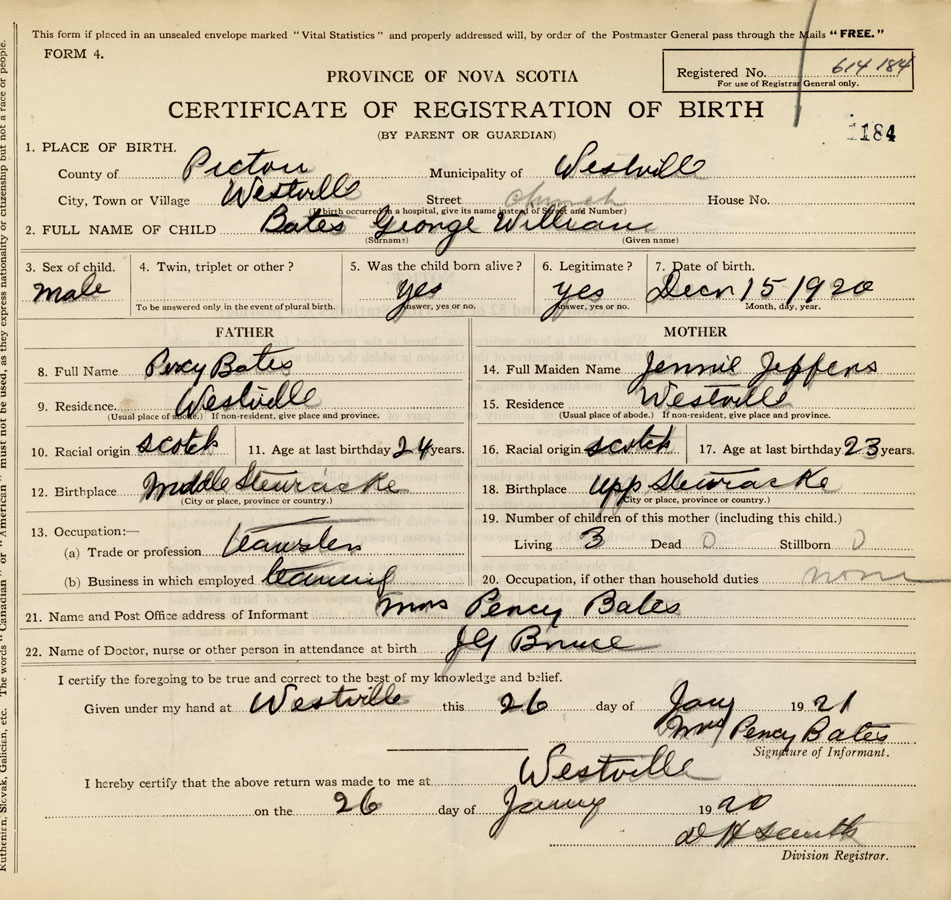 This form if placed in an unsealed envelope marked "Vital Statistics" and properly addressed will, by order of the Postmaster General pass through the Mails "FREE."
FORM 4.
Registered No. 614184
For use of Registrar General only.
PROVINCE OF NOVA SCOTIA
CERTIFICATE OF REGISTRATION OF BIRTH
(BY PARENT OR GUARDIAN)
1184
1. PLACE OF BIRTH.
County of Pictou Municipality of Westville
City, Town or Village Westville Street church House No.
(If birth occurred in a hospital, give its name instead of Street and Number)
2. FULL NAME OF CHILD Bates George William
(Surname) (Given name)
3. Sex of child. 4. Twin, triplet or other? 5. Was the child born alive? 6. Legitimate? 7. Date of birth.
Male yes yes Decr 15 1920
To be answered only in the event of plural birth. Answer, yes or no. Answer, yes or no. Month, day, year.
FATHER
8. Full Name Percy Bates
9. Residence. Westville
(Usual place of abode.) If non-resident, give place and province.
10. Racial origin scotch 11. Age at last birthday 24 years.
12. Birthplace Middle Stewiacke
(City or place, province or country.)
13. Occupation:—
(a) Trade or profession Teamster
(b) Business in which employed teaming
MOTHER
14. Full Maiden Name Jennie Jeffers
15. Residence Westville
(Usual place of abode.) If non-resident, give place and province.
16. Racial origin scotch 17. Age at last birthday 23 years.
18. Birthplace Upp Stewiacke
(City or place, province or country.)
19. Number of children of this mother (including this child.)
Living 3 Dead 0 Stillborn 0
20. Occupation, if other than household duties none
21. Name and Post Office address of Informant Mrs Percy Bates
22. Name of Doctor, nurse or other person in attendance at birth JG Bruce
I certify the foregoing to be true and correct to the best of my knowledge and belief.
Given under my hand at Westville this 26 day of Jany 1921
Mrs Percy Bates
Signature of Informant.
I hereby certify that the above return was made to me at Westville
on the 26 day of Jany 1920
D H Smith
Division Registrar.
Ruthenian, Slovak, Galician, etc. The words "Canadian" or "American" must not be used, as they express nationality or citizenship but not a race or people.